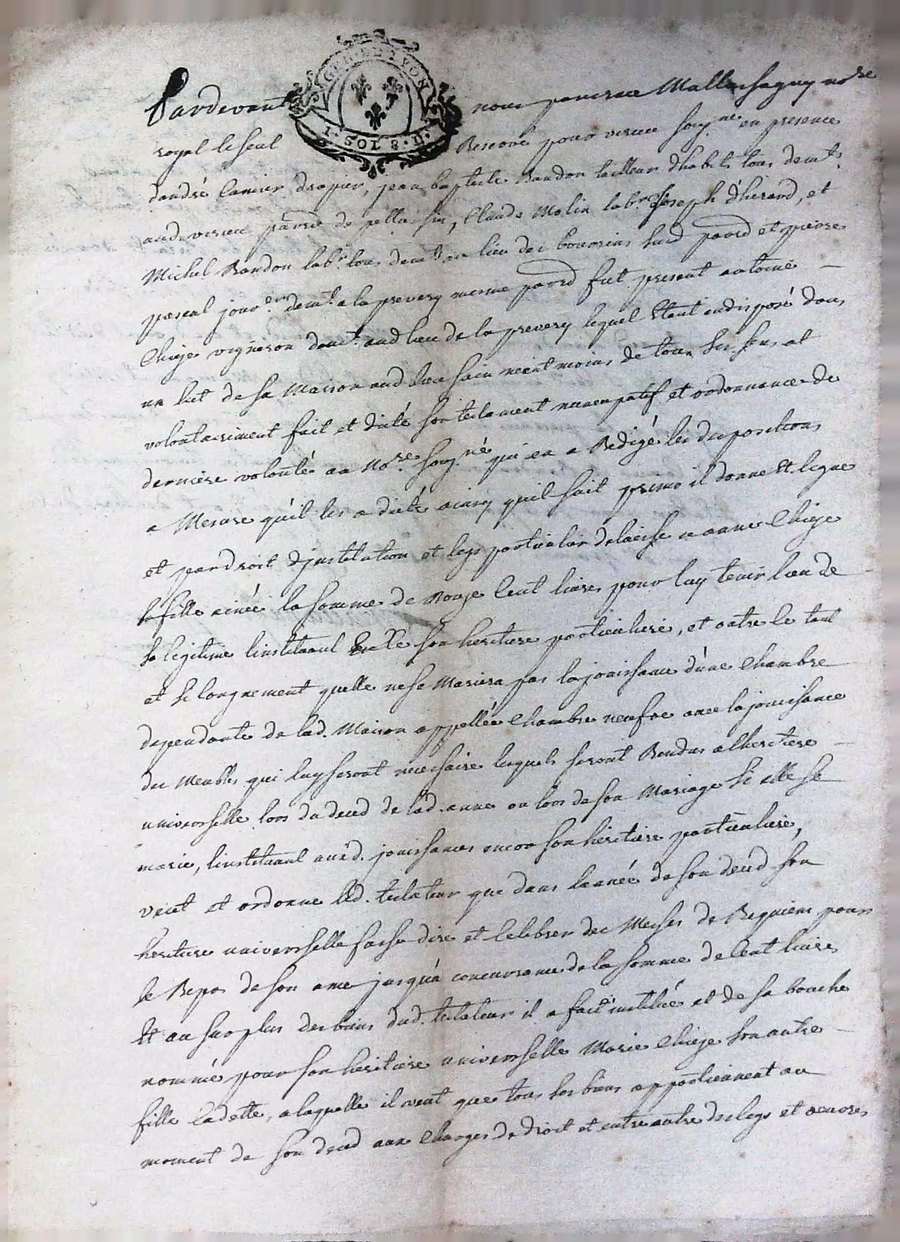 GEN. DE LYON
I. SOL 8. D.
Pardevant nous pancrace Mallen Saguy nore
royal le seul Reservé pour virieu soigne en presence
dandré Carrier drapier, jean baptiste Randon tailleur dhabits tous demts
aud. virieu parsse de pellussin, Claude Molin labr Joseph dherand, et
Michel Randon labr tous demts en lieu des bouorins susd parsse et pierre
pascal jour demt a la prevery mesme parsse fut present antoine
Chieze vigneron demt. aud. lieu de la prevery lequel Etant indisposé dans
un lict de sa Maison aud. lieu sain neantmoins de tous ses sens at
volontairement fait et dicté son testament nuncupatif et ordonnance de
derniere volonté au nore soigné qui en a Redigé les dispositions
a Mesure quil les a dicté ainsy quil suit primo il donne et legue
et par droit d'institution et legs particulier delaisse a anne Chieze
sa fille ainée la somme de Cent livres pour luy tenir lieu de
sa legitime linstituant En Elle son heritiere particuliere, et outre ce tout
et si longuement quelle ne se Mariera pas la jouissance d'une Chambre
dependante de lad. Maison appellée Chambre neufve avec la jouissance
des Meubles qui luy seront necessaire lesquels seront Rendus a lheritiere
universelle lors du deced de lad. anne ou lors de son Mariage si elle se
marie, linstituant auxd. jouissances encor son héritiere particuliere,
veut et ordonne led. testateur que dans lannée de son deced son
heritiere universelle fasse dire et Celebrer des Messes de Requiem pour
le Repos de son ame jusqua concurrance de la somme de Cent livres
Et au surplus des biens dud. testateur il a fait institué et de sa bouche
nommé pour son heritiere universelle Marie Chieze son autre
fille Cadette, a laquelle il veut que tous ses biens appartiennent au
moment de son deced aux Charges de droit et entre autre des legs et œuvres